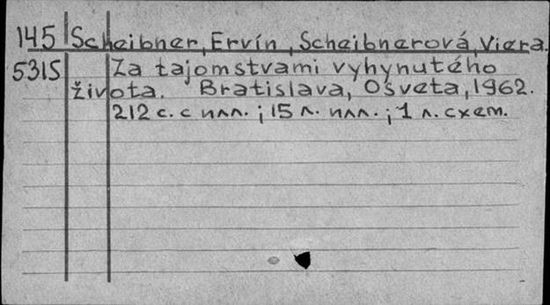 145 Scheibner, Ervín, Scheibnerová, Viera.
5315 Za tajomstvami vyhynutého
života. Bratislava, Osveta, 1962.
212 с. с илл. ; 15 л. илл. ; 1 л. схем.